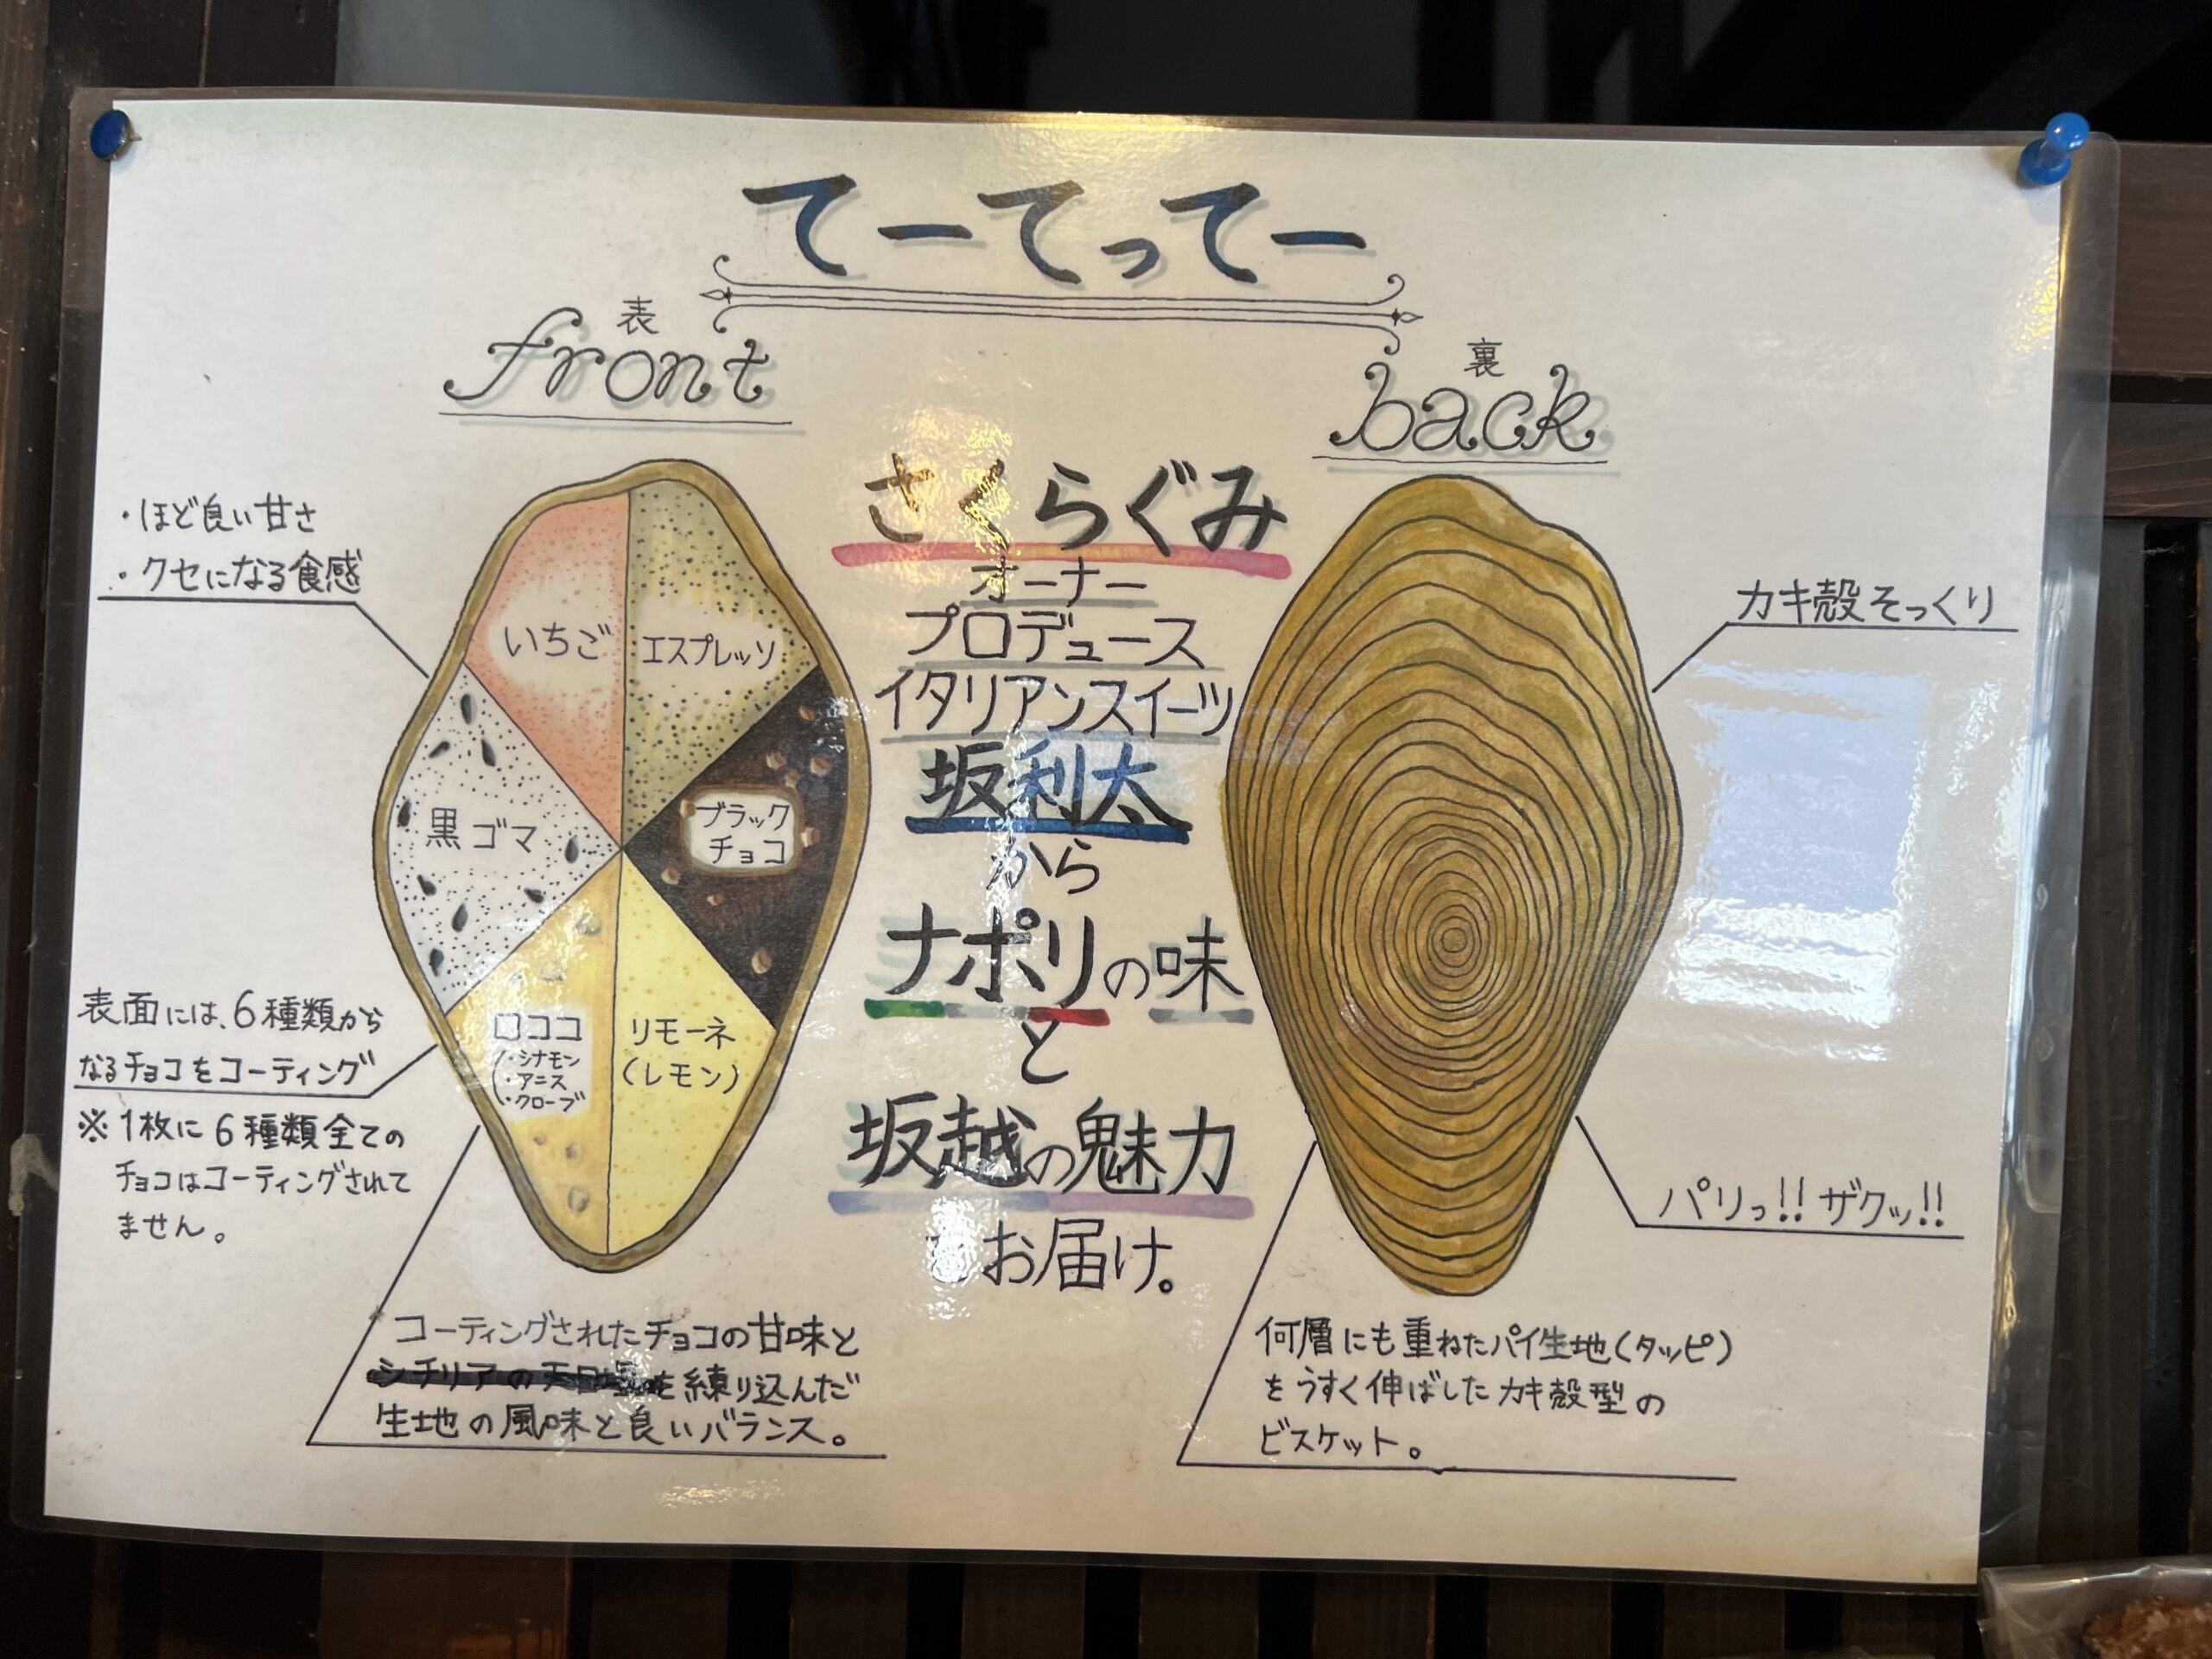 てーてってー
表
front
裏
back
・ほど良い甘さ
・クセになる食感
いちご
エスプレッソ
黒ゴマ
ブラック
チョコ
ロココ
(・シナモン
・アニス
・クローブ
リモーネ
(レモン)
表面には、6種類から
なるチョコをコーティング
※1枚に6種類全ての
チョコはコーティングされて
ません。
コーティングされたチョコの甘味と
を練り込んだ
生地の風味と良いバランス。
さくらぐみ
オーナー
プロデュース
イタリアンスイーツ
坂利太
から
ナポリの味
と
坂越の魅力
をお届け。
カキ殻そっくり
パリっ!! ザクッ!!
何層にも重ねたパイ生地(タッピ)
をうすく伸ばしたカキ殻型の
ビスケット。